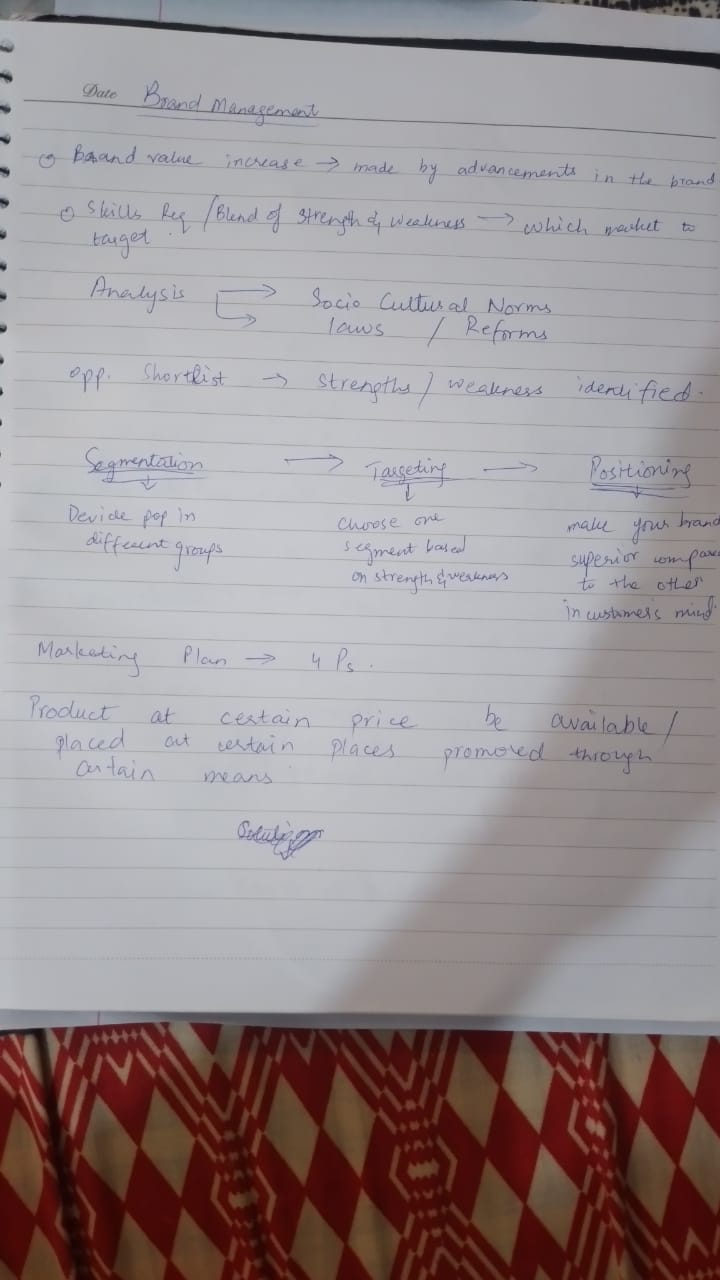 Date Brand Management
Brand value increase → made by advancements in the brand
Skills Req / Blend of strength & weakness → which market to
target.
Analysis → Socio Cultural Norms
→ laws / Reforms
Opp. Shortlist → strengths / weakness identified.
Segmentation → Targeting → Positioning
Devide pop in
different groups
choose one
segment based
on strength & weakness
make your brand
superior compare
to the other
in customer's mind.
Marketing Plan → 4 Ps.
Product at certain price be available /
placed at certain places promoted through
certain means